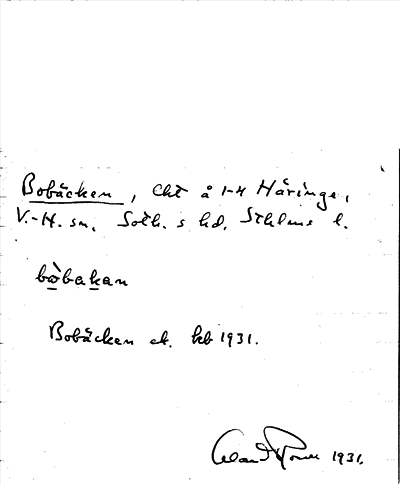 Bobäcken, Cht å 1-4 Häringe,
V.-H. sn. Soth. s hd. Sthlms l.
bòbakan
Bobäcken ek. kb 1931.
1931.